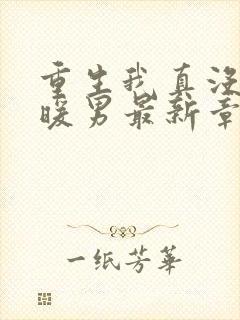 重生我真没
暖男最新章
一纸芳华